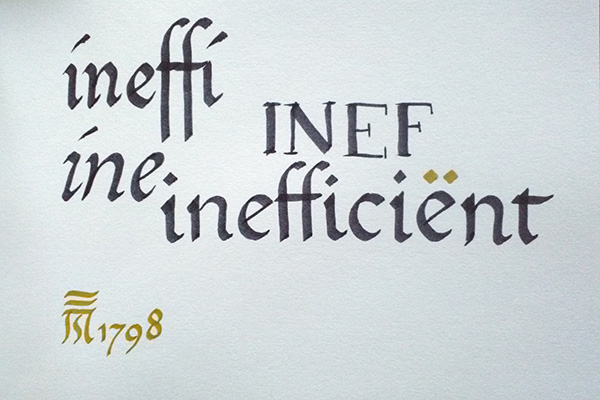 ineffi
INEF
ine
inefficiënt
1798